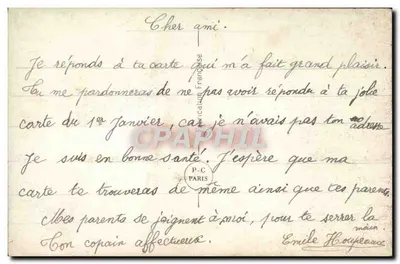 Cher ami.
Je réponds à ta carte qui m'a fait grand plaisir.
Tu me pardonneras de ne pas avoir répondu à ta jolie
carte du 1er Janvier, car je n'avais pas ton adresse
CPAPHIL
Je suis en bonne santé. J'espère que ma
P-C
PARIS
carte te trouveras de même ainsi que tes parents
Mes parents se joignent à moi, pour te serrer la
main.
Ton copain affectueux. Emile